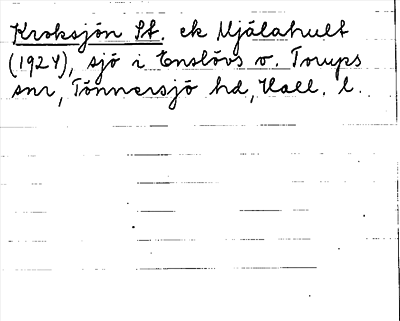 Kroksjön St. ek Mjälahult
(1924), sjö i Enslövs o. Torups
snr, Tönnersjö hd, Hall. l.